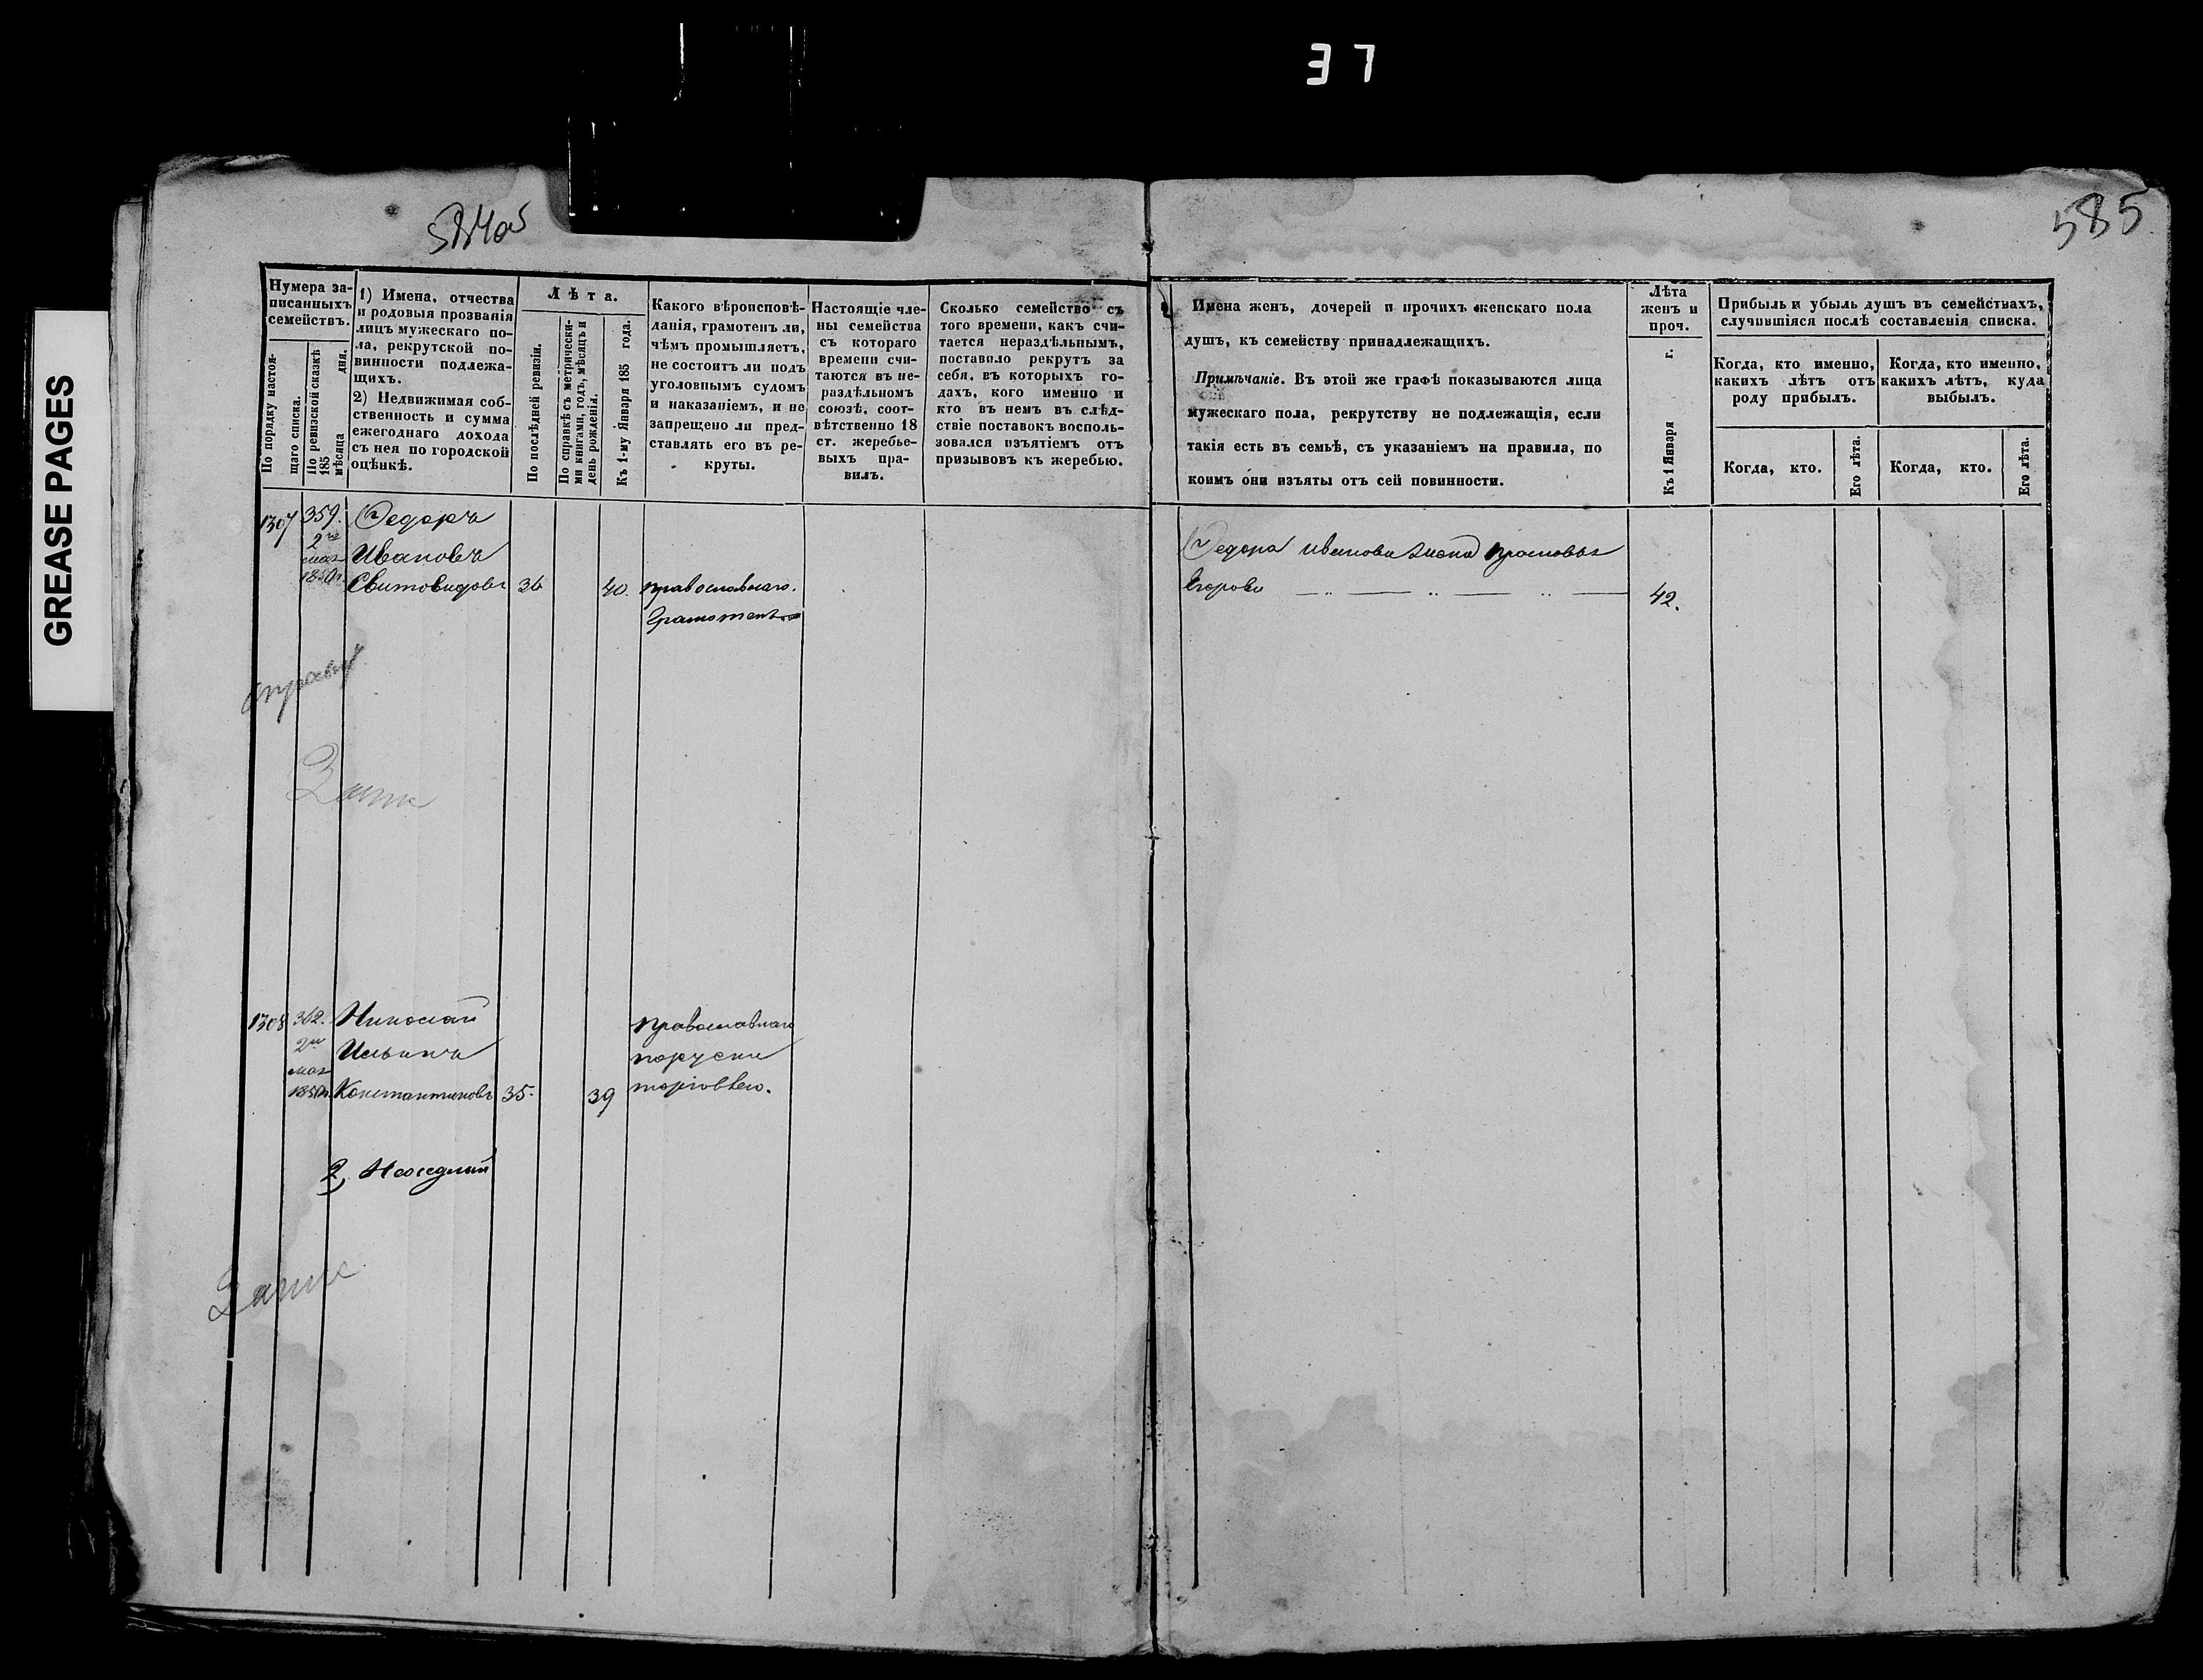 37
GREASE PAGES
585
Нумера за-
писанныхъ
семействъ.
По порядку настоя-
щаго списка.
По ревизской сказкѣ
185 дня.
мѣсяца
1) Имена, отчества
и родовыя прозванія
лицъ мужескаго по-
ла, рекрутской по-
винности подлежа-
щихъ.
2) Недвижимая соб-
ственность и сумма
ежегоднаго дохода
съ нея по городской
оцѣнкѣ.
Лѣта.
По послѣдней ревизіи.
По справкѣ съ метрически-
ми книгами, годъ, мѣсяцъ и
день рожденія.
Къ 1-му Января 185 года.
Какого вѣроисповѣ-
данія, грамотенъ ли,
чѣмъ промышляетъ,
не состоитъ ли подъ
уголовнымъ судомъ
и наказаніемъ, и не
запрещено ли пред-
ставлять его въ ре-
круты.
Настоящіе чле-
ны семейства
съ котораго
времени счи-
таются въ не-
раздѣльномъ
союзѣ, соот-
вѣтственно 18
ст. жеребье-
выхъ пра-
вилъ.
Сколько семейство съ
того времени, какъ счи-
тается нераздѣльнымъ,
поставило рекрутъ за
себя, въ которыхъ го-
дахъ, кого именно и
кто въ немъ въ слѣд-
ствіе поставокъ восполь-
зовался изъятіемъ отъ
призывовъ къ жеребью.
Имена женъ, дочерей и прочихъ женскаго пола
душъ, къ семейству принадлежащихъ.
Примѣчаніе. Въ этой же графѣ показываются лица
мужескаго пола, рекрутству не подлежащія, если
такія есть въ семьѣ, съ указаніемъ на правила, по
коимъ они изъяты отъ сей повинности.
Лѣта
женъ и
проч.
Къ 1 Января г.
Прибыль и убыль душъ въ семействахъ,
случившіяся послѣ составленія списка.
Когда, кто именно,
какихъ лѣтъ отъ
роду прибылъ.
Когда, кто именно,
какихъ лѣтъ, куда
выбылъ.
Когда, кто.
Его лѣта.
Когда, кто.
Его лѣта.
1307 359. Федоръ
2го Ивановъ
мая
1850г. Свитовидовъ 36 40. православнаго.
Грамотенъ
Федора Иванова жена
Егорова 42.
1308 362. Николай православнаго
2го Ильинъ
мая
1850г. Константиновъ 35. 39 торговлею.
2, Неоседлый